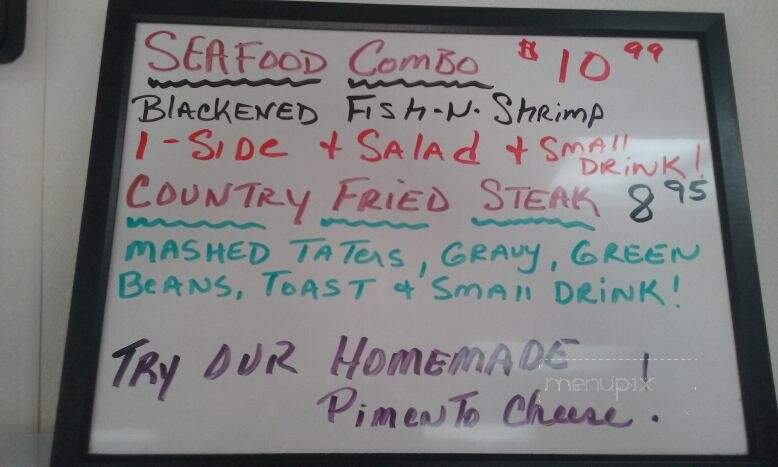 SEAFOOD COMBO $10.99
BLACKENED FISH-N-SHRIMP
1-SIDE + SALAD + SMALL
DRINK!
COUNTRY FRIED STEAK 8.95
MASHED TATERS, GRAVY, GREEN
BEANS, TOAST & SMALL DRINK!
TRY OUR HOMEMADE
menupix
PIMENTO Cheese!